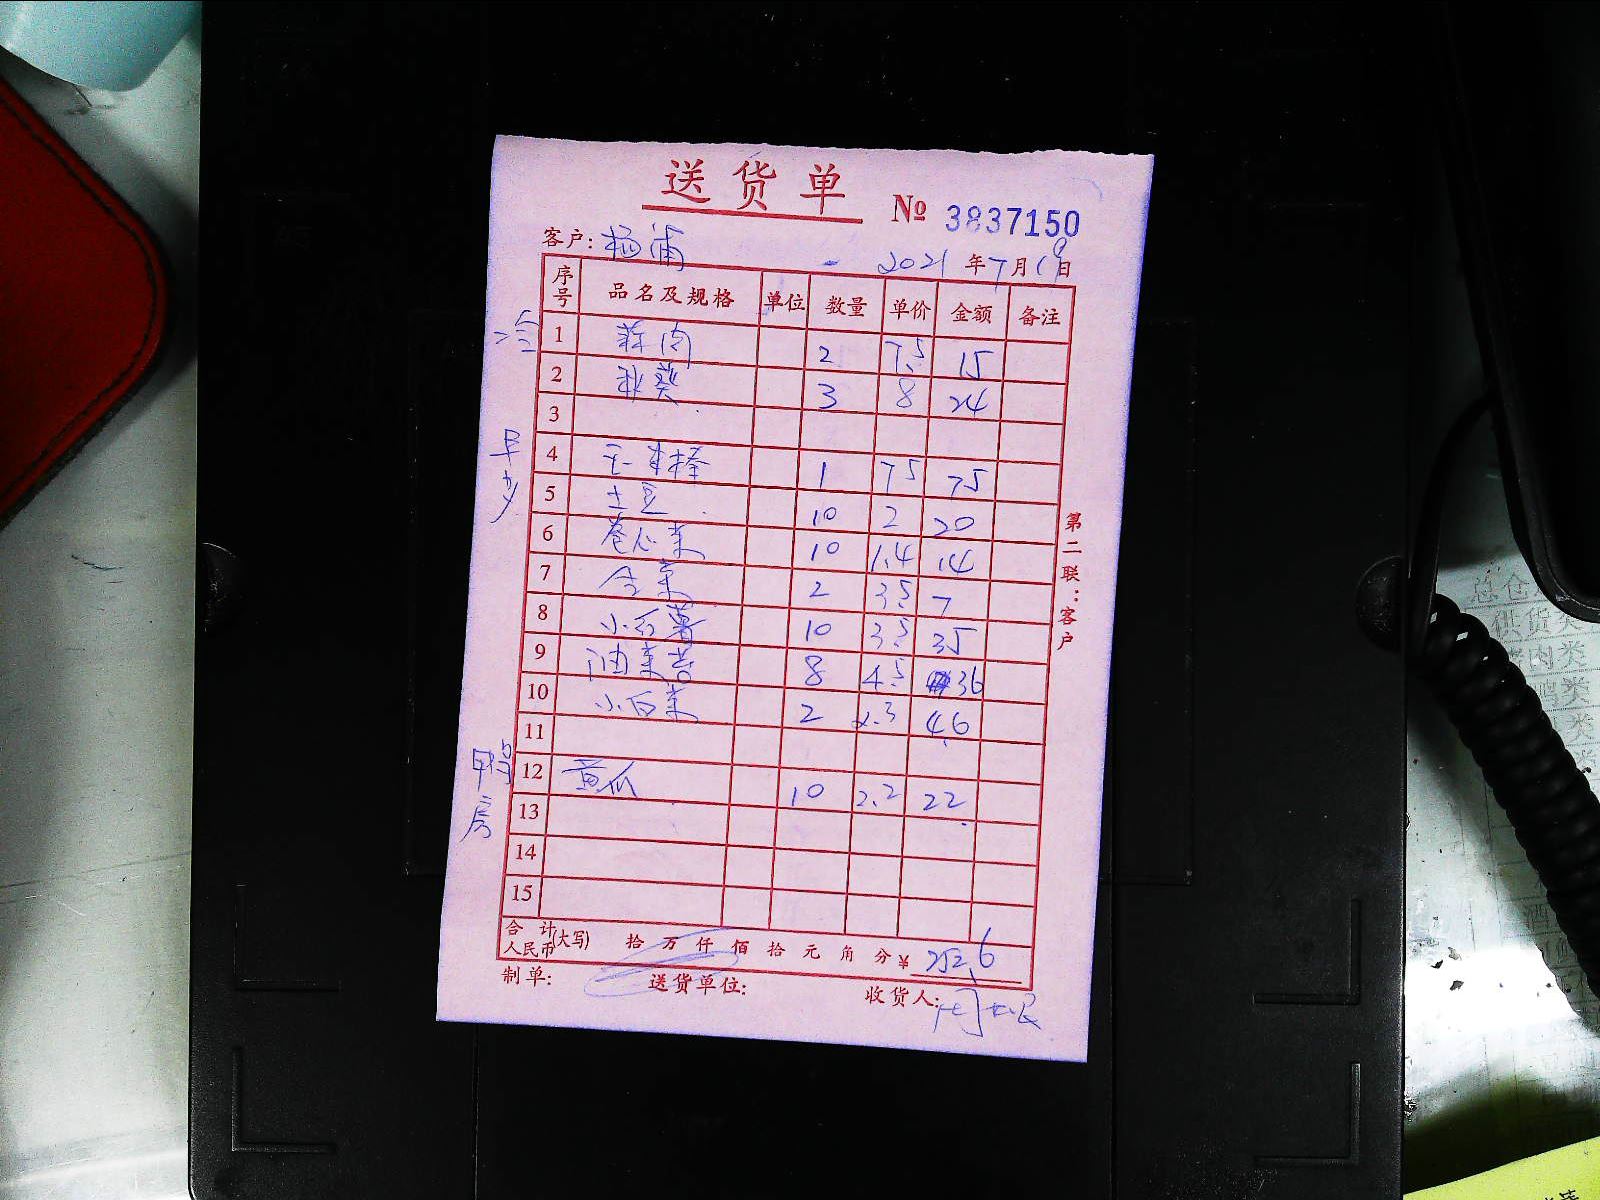 送货单
№ 3837150
客户: 杨浦 2021年7月19日
序号 品名及规格 单位 数量 单价 金额 备注
冷
1 蒜肉 2 7.5 15
2 秋葵 3 8 24
3
早少
4 玉米棒 1 75 75
5 土豆 10 2 20
6 卷心菜 10 1.4 14
7 2 3.5 7
8 小白薯 10 3.5 35
9 油麦 8 4.5 36
10 小白菜 2 2.3 4.6
11
鸭房
12 黄瓜 10 2.2 22
13
14
15
合计人民币(大写) 拾 万 仟 佰 拾 元 角 分 ¥ 252.6
制单: 送货单位: 收货人:
第二联:客户
总仓
供货类
肉类
鸭类
类